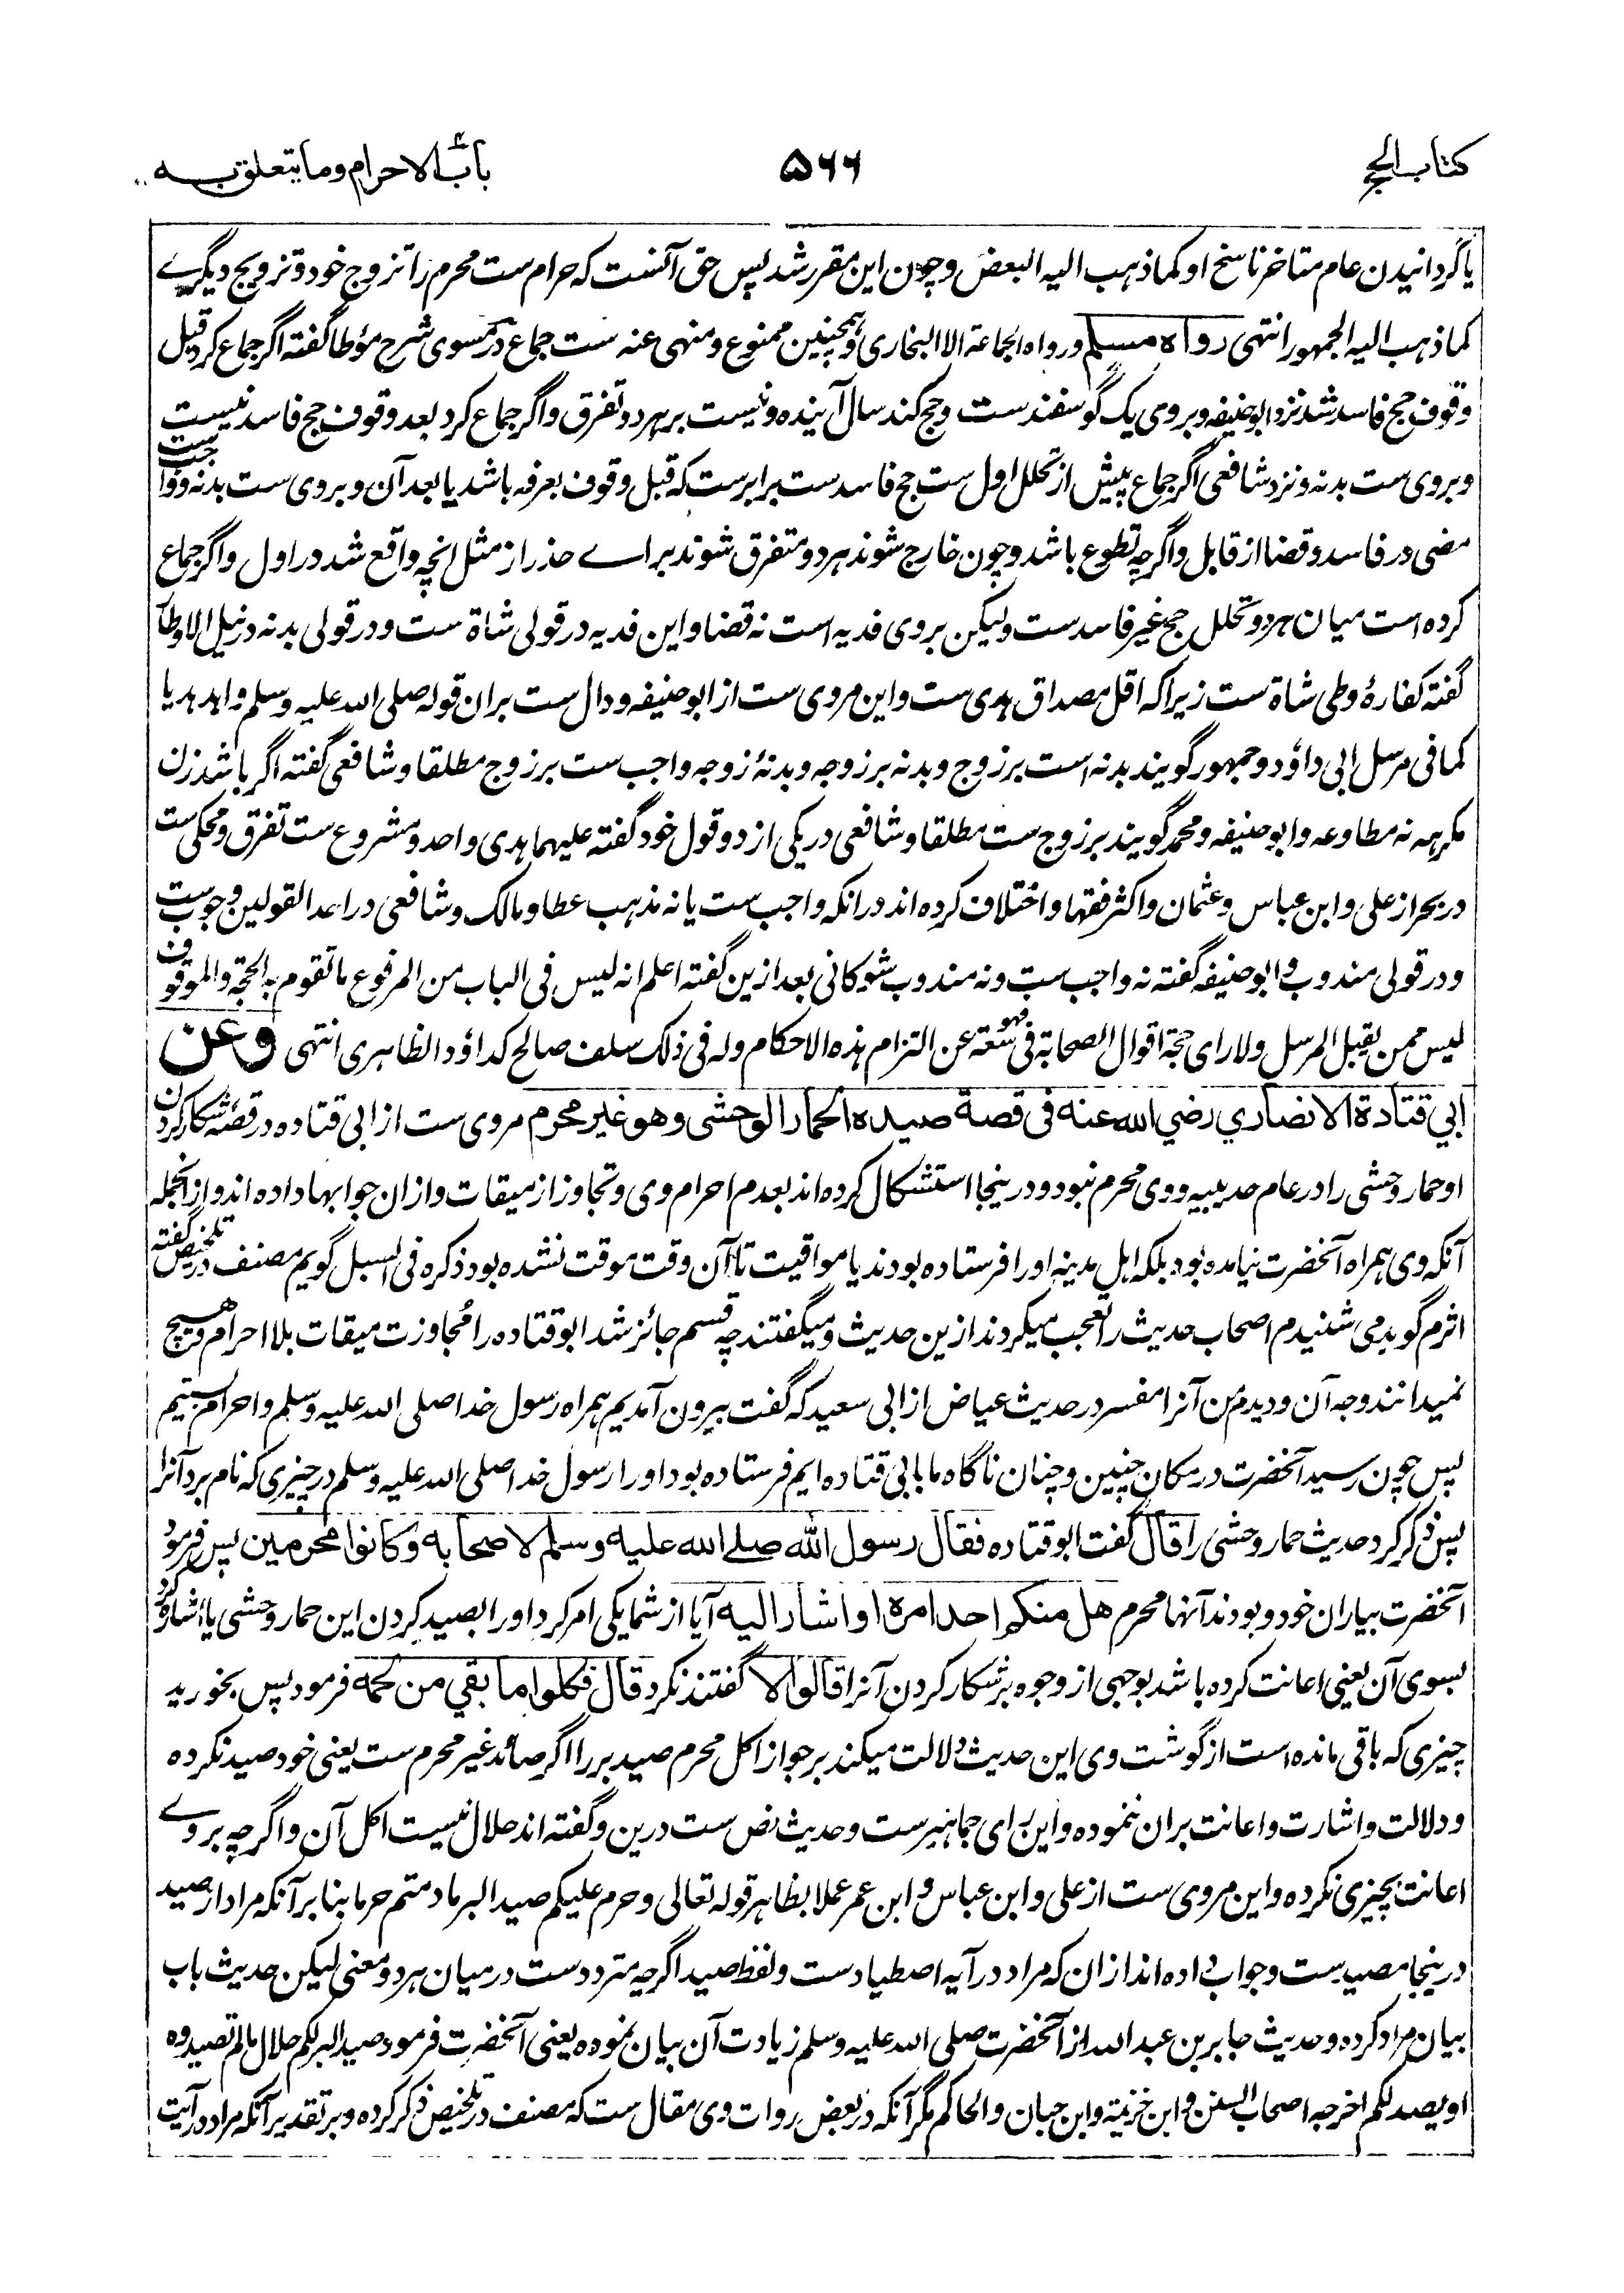 کتاب الحج
۵۶۶
باب الاحرام وما يتعلق به
یا گردانیدن عام متاخر ناسخ او کما ذہب الیہ البعض وچون این مقرر شد پس حق آنست کہ حرام ست محرم را تزوج خود و تزویج دیگرے
کما ذہب الیہ الجمہور انتہی رواه مسلم ورواہ الجماعۃ الا البخاری وہمچنین ممنوع و منہی عنہ ست جماع در مسوی شرح مؤطا گفتہ اگر جماع کرد قبل
وقوف حج فاسد شد نزد ابوحنیفہ و بروی یک گوسفندست وحج کند سال آیندہ و نیست بر ہر دو تفرق واگر جماع کرد بعد وقوف حج فاسد نیست
وبروی ست بدنہ ونزد شافعی اگر جماع پیش از تحلل اول ست حج فاسد ست برابرست کہ قبل وقوف بعرفہ باشد یا بعد آن و بروی ست بدنہ وواجب ست
مضی در فاسد وقضا از قابل واگرچہ تطوع باشد وچون خارج شوند ہر دو متفرق شوند براے حذر از مثل انچہ واقع شد در اول واگر جماع
کردہ است میان ہر دو تحلل حج غیر فاسد ست ولیکن بروی فدیہ است نہ قضا واین فدیہ در قولی شاۃ ست ودر قولی بدنہ در نیل الاوطار
گفتہ کفارۂ وطی شاۃ ست زیراکہ اقل مصداق ہدی ست واین مروی ست از ابوحنیفہ ودال ست بران قولہ صلی اللہ علیہ وسلم واہدہدیا
کما فی مرسل ابی داؤد وجمہور گویند بدنہ است بر زوج وبدنہ بر زوجہ وبدنۂ زوجہ واجب ست بر زوج مطلقا وشافعی گفتہ اگر باشد زن
مکرہہ نہ مطاوعہ وابوحنیفہ ومحمد گویند بر زوج ست مطلقا وشافعی در یکی از دو قول خود گفتہ علیہما ہدی واحد ومشروع ست تفرق ومحکی ست
در بحر از علی وابن عباس وعثمان واکثر فقہا واختلاف کردہ اند درانکہ واجب ست یا نہ مذہب عطا ومالک وشافعی در احد القولین وجوب ست
ودر قولی مندوب وابوحنیفہ گفتہ نہ واجب ست ونہ مندوب شوکانی بعد ازین گفتہ اعلم انہ لیس فی الباب من المرفوع ما تقوم بہ الحجۃ والموقوف
لیس ممن یقبل المرسل ولا رای حجۃ اقوال الصحابۃ فہو فی سعۃ عن التزام ہذہ الاحکام ولہ فی ذلک سلف صالح کداؤد الظاہری انتہی وعن
ابي قتادة الانصاري رضي الله عنه فى قصة صيده الحمار الوحشى وهو غير محرم مروی ست از ابی قتادہ در قصۂ شکار کردن
او حمار وحشی را در عام حدیبیہ ووی محرم نبود ودرینجا استشکال کردہ اند بعدم احرام وی وتجاوز از میقات وازان جوابہا دادہ اند وازانجملہ
آنکہ وی ہمراہ آنحضرت نیامدہ بود بلکہ اہل مدینہ اورا فرستادہ بودند یا مواقیت تا آن وقت موقت نشدہ بود ذکرہ فی السبل گویم مصنف در تلخیص گفتہ
اثرم گوید می شنیدم اصحاب حدیث را تعجب میکردند ازین حدیث ومیگفتند چہ قسم جائز شد ابوقتادہ را مجاوزت میقات بلا احرام وہیچ
نمیدانند وجہ آن ودیدم من آنرا مفسر در حدیث عیاض از ابی سعید کہ گفت بیرون آمدیم ہمراہ رسول خدا صلی اللہ علیہ وسلم واحرام بستیم
پس چون رسید آنحضرت در مکان چنین وچنان ناگاہ ما بابی قتادہ ایم فرستادہ بود اورا رسول خدا صلی اللہ علیہ وسلم در چیزی کہ نام برد آنرا
پس ذکر کرد حدیث حمار وحشی را قال گفت ابوقتادہ فقال رسول الله صلے الله عليه وسلم لاصحابه وكانوا محرمين پس فرمود
آنحضرت بیاران خود وبودند آنہا محرم هل منكم احد امره او اشار اليه آیا از شما یکی امر کرد اورا بصید کردن این حمار وحشی یا اشارہ کرد
بسوی آن یعنی اعانت کردہ باشد بوجہی از وجوہ بر شکار کردن آنرا قالوا لا گفتند نکرد قال فكلوا ما بقي من لحمه فرمود پس بخورید
چیزی کہ باقی ماندہ است از گوشت وی این حدیث دلالت میکند بر جواز اکل محرم صید بر را اگر صائد غیر محرم ست یعنی خود صید نکردہ
ودلالت واشارت واعانت بران ننمودہ واین رای جماہیرست وحدیث نص ست درین وگفتہ اند حلال نیست اکل آن واگرچہ بروے
اعانت بچیزی نکردہ واین مروی ست از علی وابن عباس وابن عمر عملا بظاہر قولہ تعالی وحرم علیکم صید البر مادمتم حرما بنا بر آنکہ مراد از صید
درینجا مصیدست وجواب دادہ اند ازان کہ مراد در آیہ اصطیادست ولفظ صید اگرچہ مترددست درمیان ہر دو معنی لیکن حدیث باب
بیان مراد کردہ وحدیث جابر بن عبد اللہ از آنحضرت صلی اللہ علیہ وسلم زیادت آن بیان نمودہ یعنی آنحضرت فرمود صید البر لکم حلال مالم تصیدوہ
او یصد لکم اخرجہ اصحاب السنن وابن خزیمۃ وابن حبان والحاکم مگر آنکہ در بعض روات وی مقال ست کہ مصنف در تلخیص ذکر کردہ وبر تقدیر آنکہ مراد در آیت